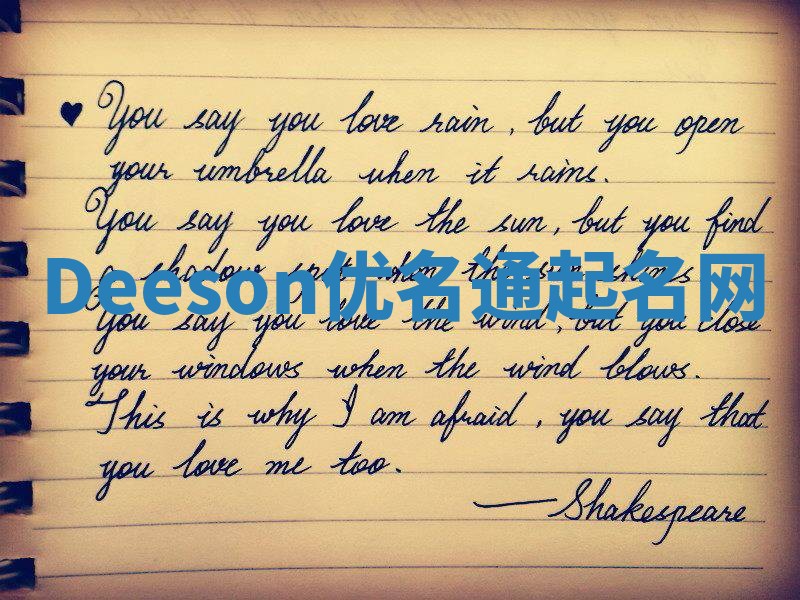 ♥ You say you love rain, but you open
your umbrella when it rains.
You say you love the sun, but you find
a shadow spot when the sun shines
Deeson优名通起名网
You say you love the wind, but you close
your windows when the wind blows.
This is why I am afraid, you say that
you love me too.
— Shakespeare